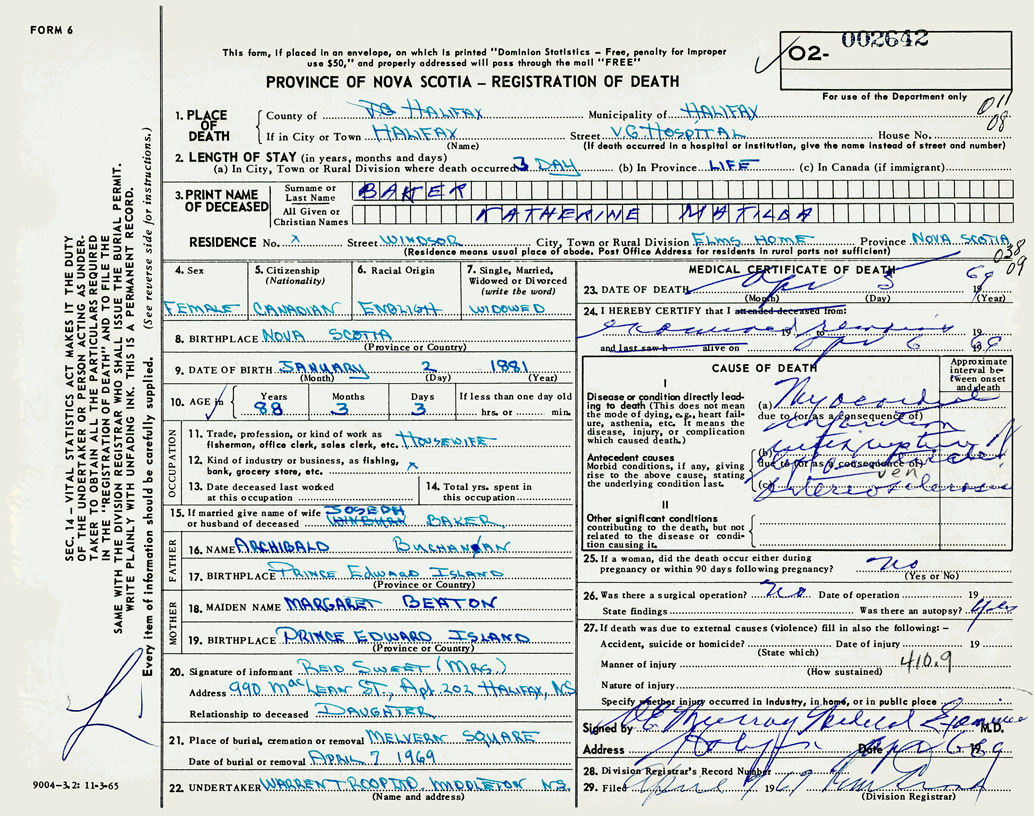 FORM 6
002642
O2-
This form, if placed in an envelope, on which is printed "Dominion Statistics – Free, penalty for improper
use $50," and properly addressed will pass through the mail "FREE"
PROVINCE OF NOVA SCOTIA – REGISTRATION OF DEATH
For use of the Department only
011
08
1. PLACE OF DEATH
County of HALIFAX Municipality of HALIFAX
If in City or Town HALIFAX Street V.G. HOSPITAL House No.
(Name) (If death occurred in a hospital or institution, give the name instead of street and number)
2. LENGTH OF STAY (in years, months and days)
(a) In City, Town or Rural Division where death occurred 3 DAY (b) In Province LIFE (c) In Canada (if immigrant)
3. PRINT NAME OF DECEASED
Surname or Last Name BAKER
All Given or Christian Names KATHERINE MATILDA
RESIDENCE No. x Street WINDSOR City, Town or Rural Division ELMS HOME Province NOVA SCOTIA
(Residence means usual place of abode. Post Office Address for residents in rural parts not sufficient)
038
09
4. Sex FEMALE
5. Citizenship (Nationality) CANADIAN
6. Racial Origin ENGLISH
7. Single, Married, Widowed or Divorced (write the word) WIDOWED
8. BIRTHPLACE NOVA SCOTIA
(Province or Country)
9. DATE OF BIRTH JANUARY 2 1881
(Month) (Day) (Year)
10. AGE in Years Months Days If less than one day old
88 3 3 hrs. or min.
OCCUPATION
11. Trade, profession, or kind of work as fisherman, office clerk, sales clerk, etc. HOUSEWIFE
12. Kind of industry or business, as fishing, bank, grocery store, etc. x
13. Date deceased last worked at this occupation
14. Total yrs. spent in this occupation
15. If married give name of wife or husband of deceased JOSEPH BAKER
FATHER
16. NAME ARCHIBALD BUCHANAN
17. BIRTHPLACE PRINCE EDWARD ISLAND
(Province or Country)
MOTHER
18. MAIDEN NAME MARGARET BEATON
19. BIRTHPLACE PRINCE EDWARD ISLAND
(Province or Country)
20. Signature of informant REID SWEET (MRS.)
Address 990 MacLEAN ST., Apt. 202 HALIFAX, NS
Relationship to deceased DAUGHTER
21. Place of burial, cremation or removal MELVERN SQUARE
Date of burial or removal APRIL 7 1969
22. UNDERTAKER WARREN T ROOP LTD. MIDDLETON N.S.
(Name and address)
MEDICAL CERTIFICATE OF DEATH
23. DATE OF DEATH Apr 5 1969
(Month) (Day) (Year)
24. I HEREBY CERTIFY that I attended deceased from:
examined 19 to 19
and last saw h alive on Apr 6 1969
CAUSE OF DEATH
Approximate interval between onset and death
I
Disease or condition directly leading to death (This does not mean the mode of dying, e.g., heart failure, asthenia, etc. It means the disease, injury, or complication which caused death.)
(a) Myocardial
due to (or as a consequence of)
infarction
Antecedent causes
Morbid conditions, if any, giving rise to the above cause, stating the underlying condition last.
(b) with rupture of
due to (or as a consequence of)
gen
(c) arteriosclerosis
II
Other significant conditions contributing to the death, but not related to the disease or condition causing it.
25. If a woman, did the death occur either during pregnancy or within 90 days following pregnancy? no
(Yes or No)
26. Was there a surgical operation? no Date of operation 19
State findings Was there an autopsy? yes
27. If death was due to external causes (violence) fill in also the following: –
Accident, suicide or homicide? Date of injury 19
(State which)
Manner of injury 410.9
(How sustained)
Nature of injury
Specify whether injury occurred in industry, in home, or in public place
Signed by Murray Medical Examiner M.D.
Address Halifax Date Apr 6 1969
28. Division Registrar's Record Number
29. Filed April 1969
(Division Registrar)
SEC. 14 – VITAL STATISTICS ACT MAKES IT THE DUTY
OF THE UNDERTAKER OR PERSON ACTING AS UNDER-
TAKER TO OBTAIN ALL THE PARTICULARS REQUIRED
IN THE "REGISTRATION OF DEATH" AND TO FILE THE
SAME WITH THE DIVISION REGISTRAR WHO SHALL ISSUE THE BURIAL PERMIT.
WRITE PLAINLY WITH UNFADING INK. THIS IS A PERMANENT RECORD.
Every item of information should be carefully supplied. (See reverse side for instructions.)
9004–3.2: 11-3-65